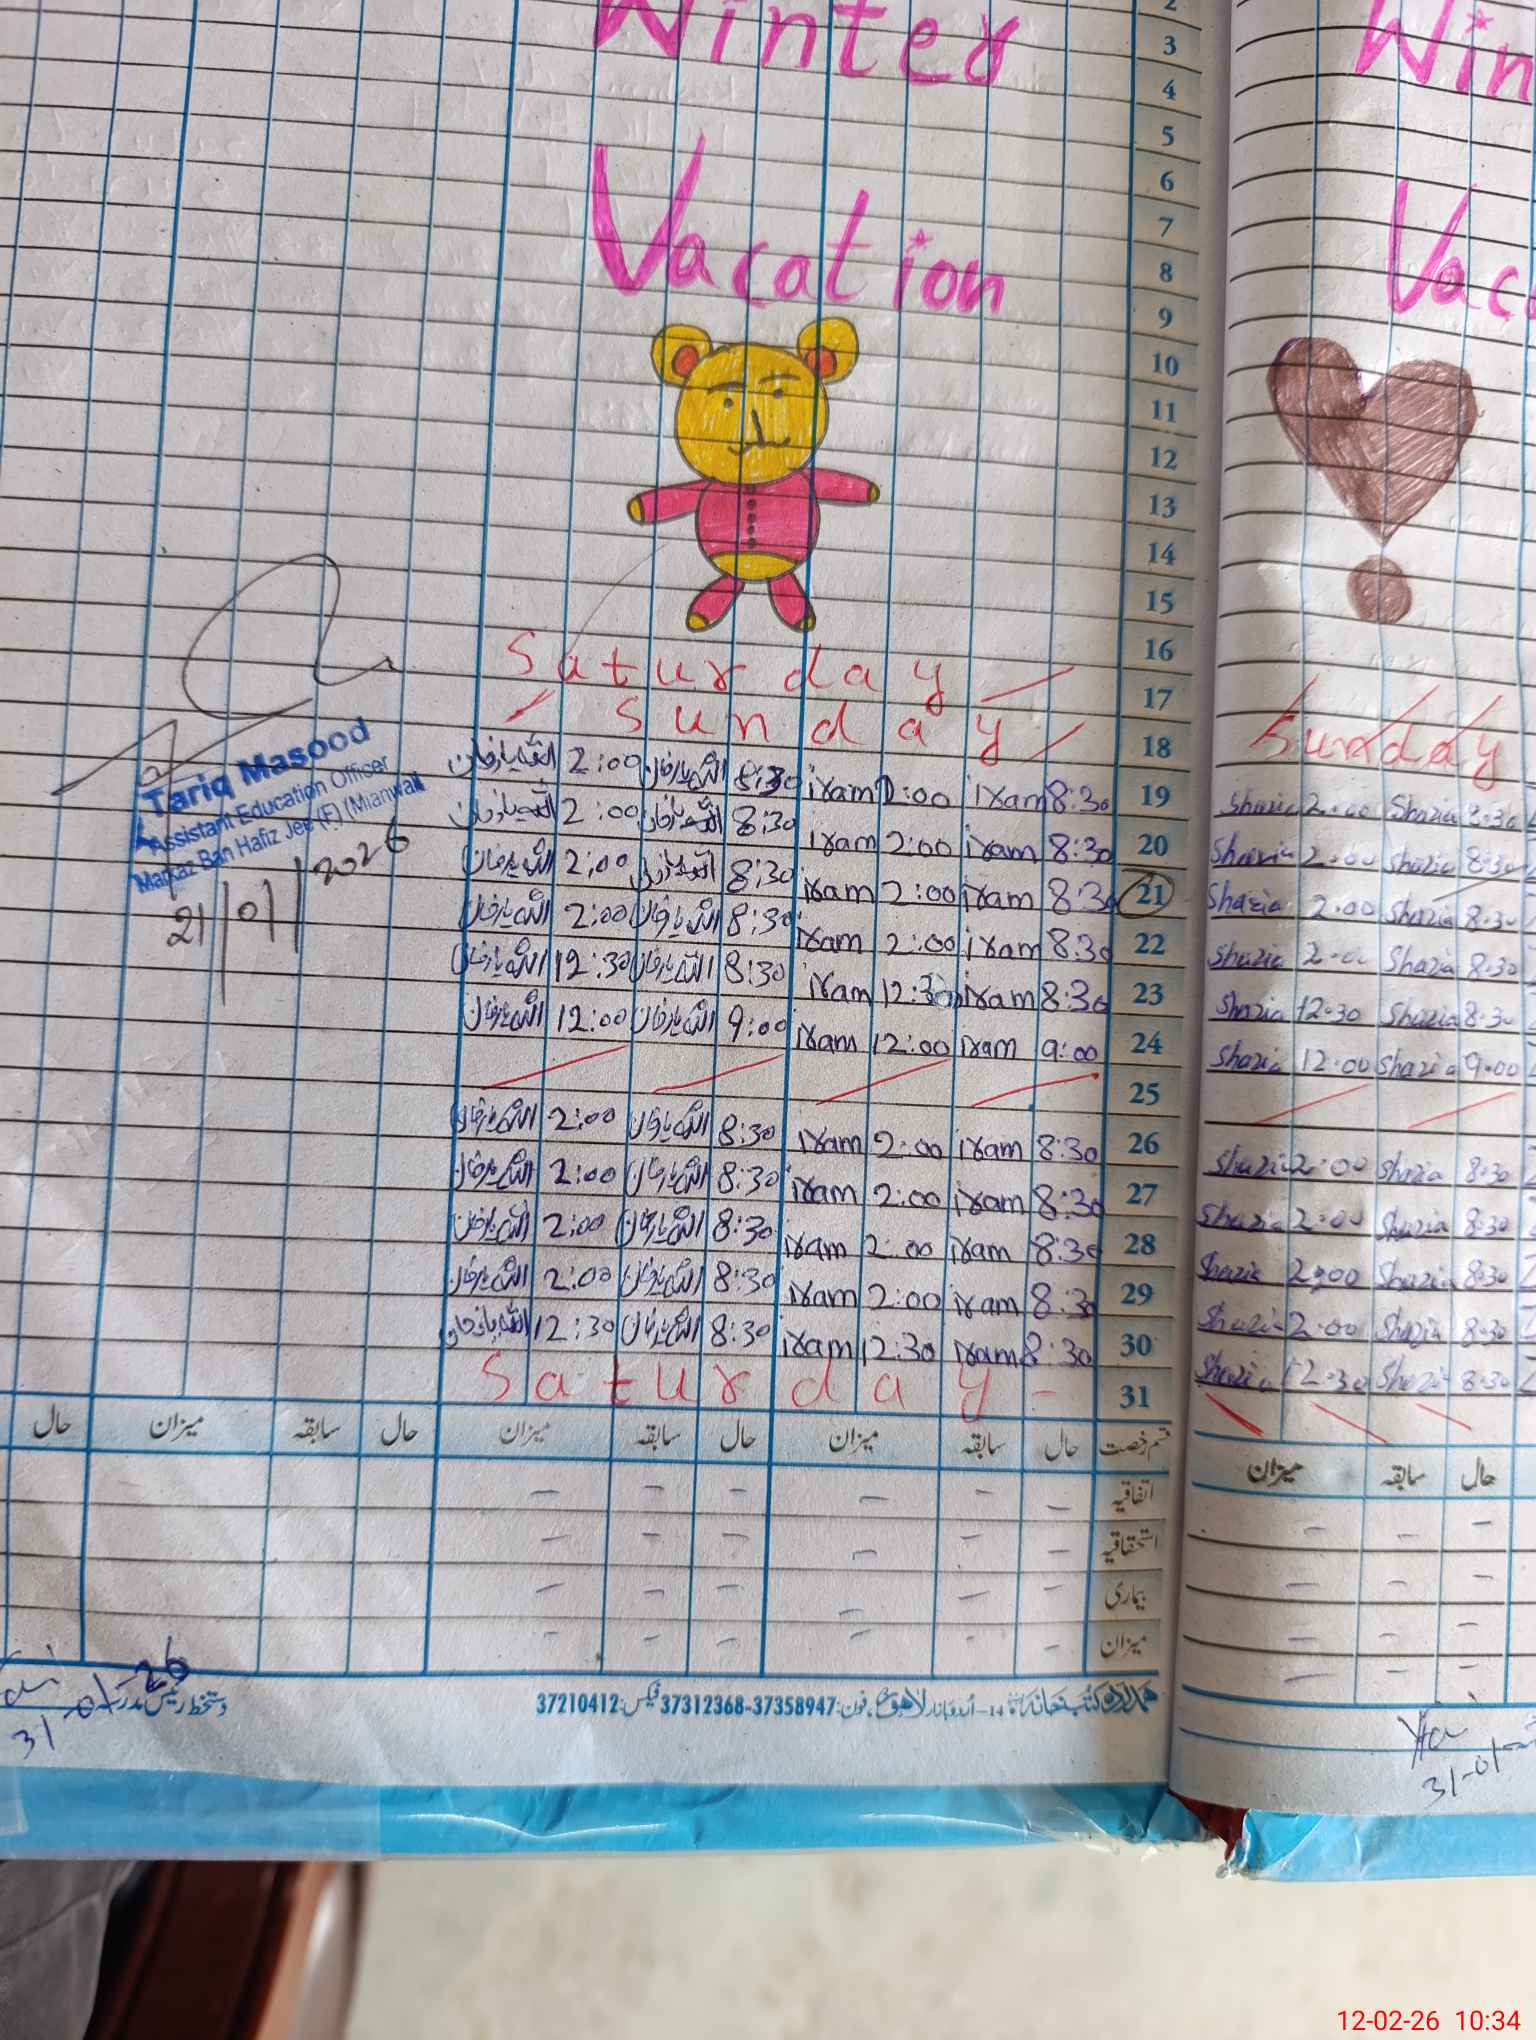 Winter
Vacation
2
3
4
5
6
7
8
9
10
11
12
13
14
15
16
Saturday 17
Sunday 18
اللہ یار خان 2:00 اللہ یار خان 8:30 iram 2:00 iram 8:30 19
اللہ یار خان 2:00 اللہ یار خان 8:30 iram 2:00 iram 8:30 20
اللہ یار خان 2:00 اللہ یار خان 8:30 iram 2:00 iram 8:30 21
اللہ یار خان 2:00 اللہ یار خان 8:30 iram 2:00 iram 8:30 22
اللہ یار خان 12:30 اللہ یار خان 8:30 iram 12:30 iram 8:30 23
اللہ یار خان 12:00 اللہ یار خان 9:00 iram 12:00 iram 9:00 24
25
اللہ یار خان 2:00 اللہ یار خان 8:30 iram 2:00 iram 8:30 26
اللہ یار خان 2:00 اللہ یار خان 8:30 iram 2:00 iram 8:30 27
اللہ یار خان 2:00 اللہ یار خان 8:30 iram 2:00 iram 8:30 28
اللہ یار خان 2:00 اللہ یار خان 8:30 iram 2:00 iram 8:30 29
اللہ یار خان 12:30 اللہ یار خان 8:30 iram 12:30 iram 8:30 30
Saturday 31
Tariq Masood
Assistant Education Officer
Markaz Ban Hafiz Jee (F) (Mianwali
21/01/2026
قسم رخصت حال سابقہ میزان حال سابقہ میزان حال سابقہ میزان حال
اتفاقیہ
استحقاقیہ
بیماری
میزان
دستخط رئیس مدرسہ
31-01-26
ہمدرد کتب خانہ 14-اردو بازار لاہور، فون: 37358947-37312368 فیکس: 37210412
Win
Vac
Sunday
Shazia 2:00 Shazia 8:30
Shazia 2:00 Shazia 8:30
Shazia 2:00 Shazia 8:30
Shazia 2:00 Shazia 8:30
Shazia 12:30 Shazia 8:30
Shazia 12:00 Shazia 9:00
Shazia 2:00 Shazia 8:30
Shazia 2:00 Shazia 8:30
Shazia 2:00 Shazia 8:30
Shazia 2:00 Shazia 8:30
Shazia 12:30 Shazia 8:30
حال سابقہ میزان
31-01-
12-02-26 10:34